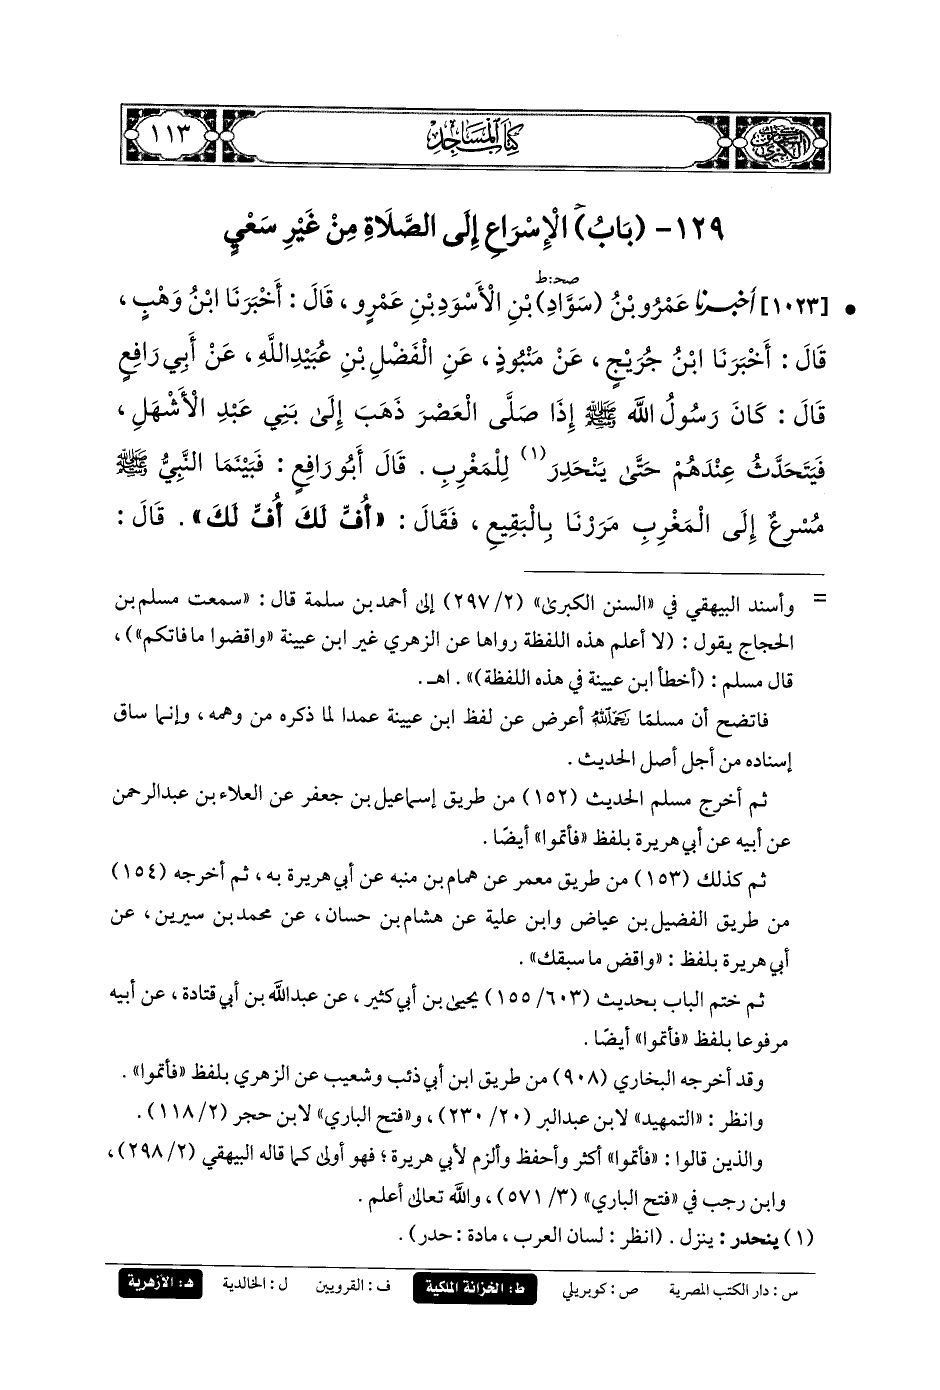 ١١٣
كتاب المساجد
السنن الكبرى
١٢٩- (بَابُ) الْإِسْرَاعِ إِلَى الصَّلَاةِ مِنْ غَيْرِ سَعْيٍ
صحـ:ط
• [١٠٢٣] أَخْبَرَنَا عَمْرُو بْنُ (سَوَّادِ) بْنِ الْأَسْوَدِ بْنِ عَمْرٍو، قَالَ: أَخْبَرَنَا ابْنُ وَهْبٍ،
قَالَ: أَخْبَرَنَا ابْنُ جُرَيْجٍ، عَنْ مَنْبُوذٍ، عَنِ الْفَضْلِ بْنِ عُبَيْدِاللَّهِ، عَنْ أَبِي رَافِعٍ
قَالَ: كَانَ رَسُولُ اللَّهِ ﷺ إِذَا صَلَّى الْعَصْرَ ذَهَبَ إِلَىٰ بَنِي عَبْدِ الْأَشْهَلِ،
فَيَتَحَدَّثُ عِنْدَهُمْ حَتَّىٰ يَنْحَدِرَ(١) لِلْمَغْرِبِ. قَالَ أَبُو رَافِعٍ: فَبَيْنَمَا النَّبِيُّ ﷺ
مُسْرِعٌ إِلَى الْمَغْرِبِ مَرَرْنَا بِالْبَقِيعِ، فَقَالَ: «أُفٍّ لَكَ أُفٍّ لَكَ». قَالَ:
= وأسند البيهقي في «السنن الكبرىٰ» (٢/ ٢٩٧) إلى أحمد بن سلمة قال: «سمعت مسلم بن
الحجاج يقول: (لا أعلم هذه اللفظة رواها عن الزهري غير ابن عيينة «واقضوا ما فاتكم»)،
قال مسلم: (أخطأ ابن عيينة في هذه اللفظة)». اهـ.
فاتضح أن مسلمًا رَحِمَهُ اللَّهُ أعرض عن لفظ ابن عيينة عمدا لما ذكره من وهمه، وإنما ساق
إسناده من أجل أصل الحديث.
ثم أخرج مسلم الحديث (١٥٢) من طريق إسماعيل بن جعفر عن العلاء بن عبدالرحمن
عن أبيه عن أبي هريرة بلفظ «فأتموا» أيضًا.
ثم كذلك (١٥٣) من طريق معمر عن همام بن منبه عن أبي هريرة به، ثم أخرجه (١٥٤)
من طريق الفضيل بن عياض وابن علية عن هشام بن حسان، عن محمد بن سيرين، عن
أبي هريرة بلفظ: «واقض ما سبقك».
ثم ختم الباب بحديث (٦٠٣/ ١٥٥) يحيىٰ بن أبي كثير، عن عبداللَّه بن أبي قتادة، عن أبيه
مرفوعا بلفظ «فأتموا» أيضًا.
وقد أخرجه البخاري (٩٠٨) من طريق ابن أبي ذئب وشعيب عن الزهري بلفظ «فأتموا».
وانظر: «التمهيد» لابن عبدالبر (٢٠/ ٢٣٠)، و«فتح الباري» لابن حجر (٢/ ١١٨).
والذين قالوا: «فأتموا» أكثر وأحفظ وألزم لأبي هريرة؛ فهو أولى كما قاله البيهقي (٢/ ٢٩٨)،
وابن رجب في «فتح الباري» (٣/ ٥٧١)، واللَّه تعالى أعلم.
(١) ينحدر: ينزل. (انظر: لسان العرب، مادة: حدر).
س: دار الكتب المصرية ص: كوبريلي ط: الخزانة الملكية ف: القرويين ل: الخالدية هـ: الأزهرية